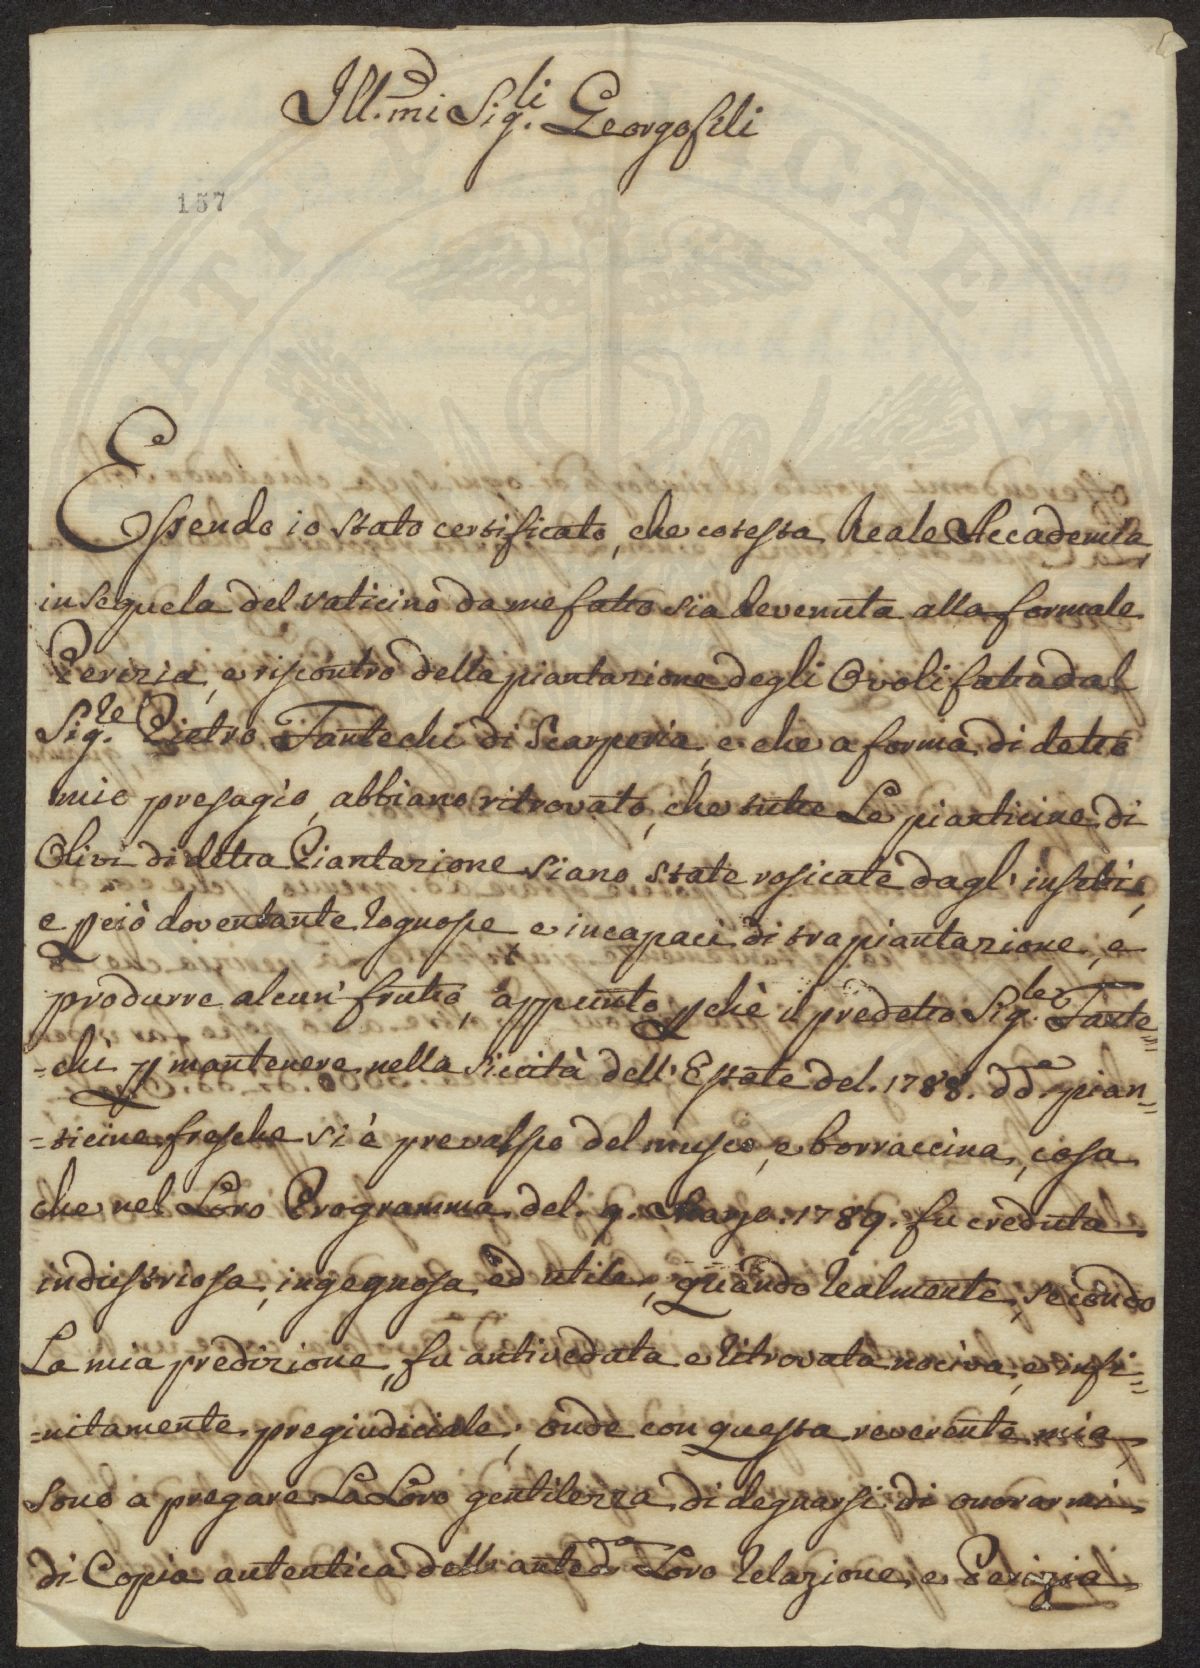 Ill.mi Sig.li Georgofili
157
Essendo io stato certificato, che cotesta Reale Accademia,
in sequela del vaticino da me fatto sia devenuta alla formale
Perizia, e riscontro della piantazione degli Ovoli fatta dal
Sig.re Pietro Fantechi di Scarperia, e che a forma di detto
mio presagio, abbiano ritrovato, che tutte Le pianticine di
Olivi di detta Piantazione siano state rosicate dagl' insetti,
e pciò doventante lognose e incapaci di trapiantazione, e
produrre alcun' frutto, appunto pchè il predetto Sig.re Fante=
=chi p mantenere nella siccità dell' Estate del. 1788. dd.e pian=
=ticine fresche si è prevalso del musco, e borraccina, cosa
che nel Loro Programma del. 9. Marzo. 1789. fu creduta
industriosa, ingegnosa, ed utile, quando Realmente, secondo
La mia predizione, fu antiveduta e Ritrovata nociva, e infi=
=nitamente pregiudiciale; onde con questa reverente mia
sono a pregare La Loro gentilezza di degnarsi di onorarmi
di Copia autentica dell' anted.a Loro Relazione, e Perizia